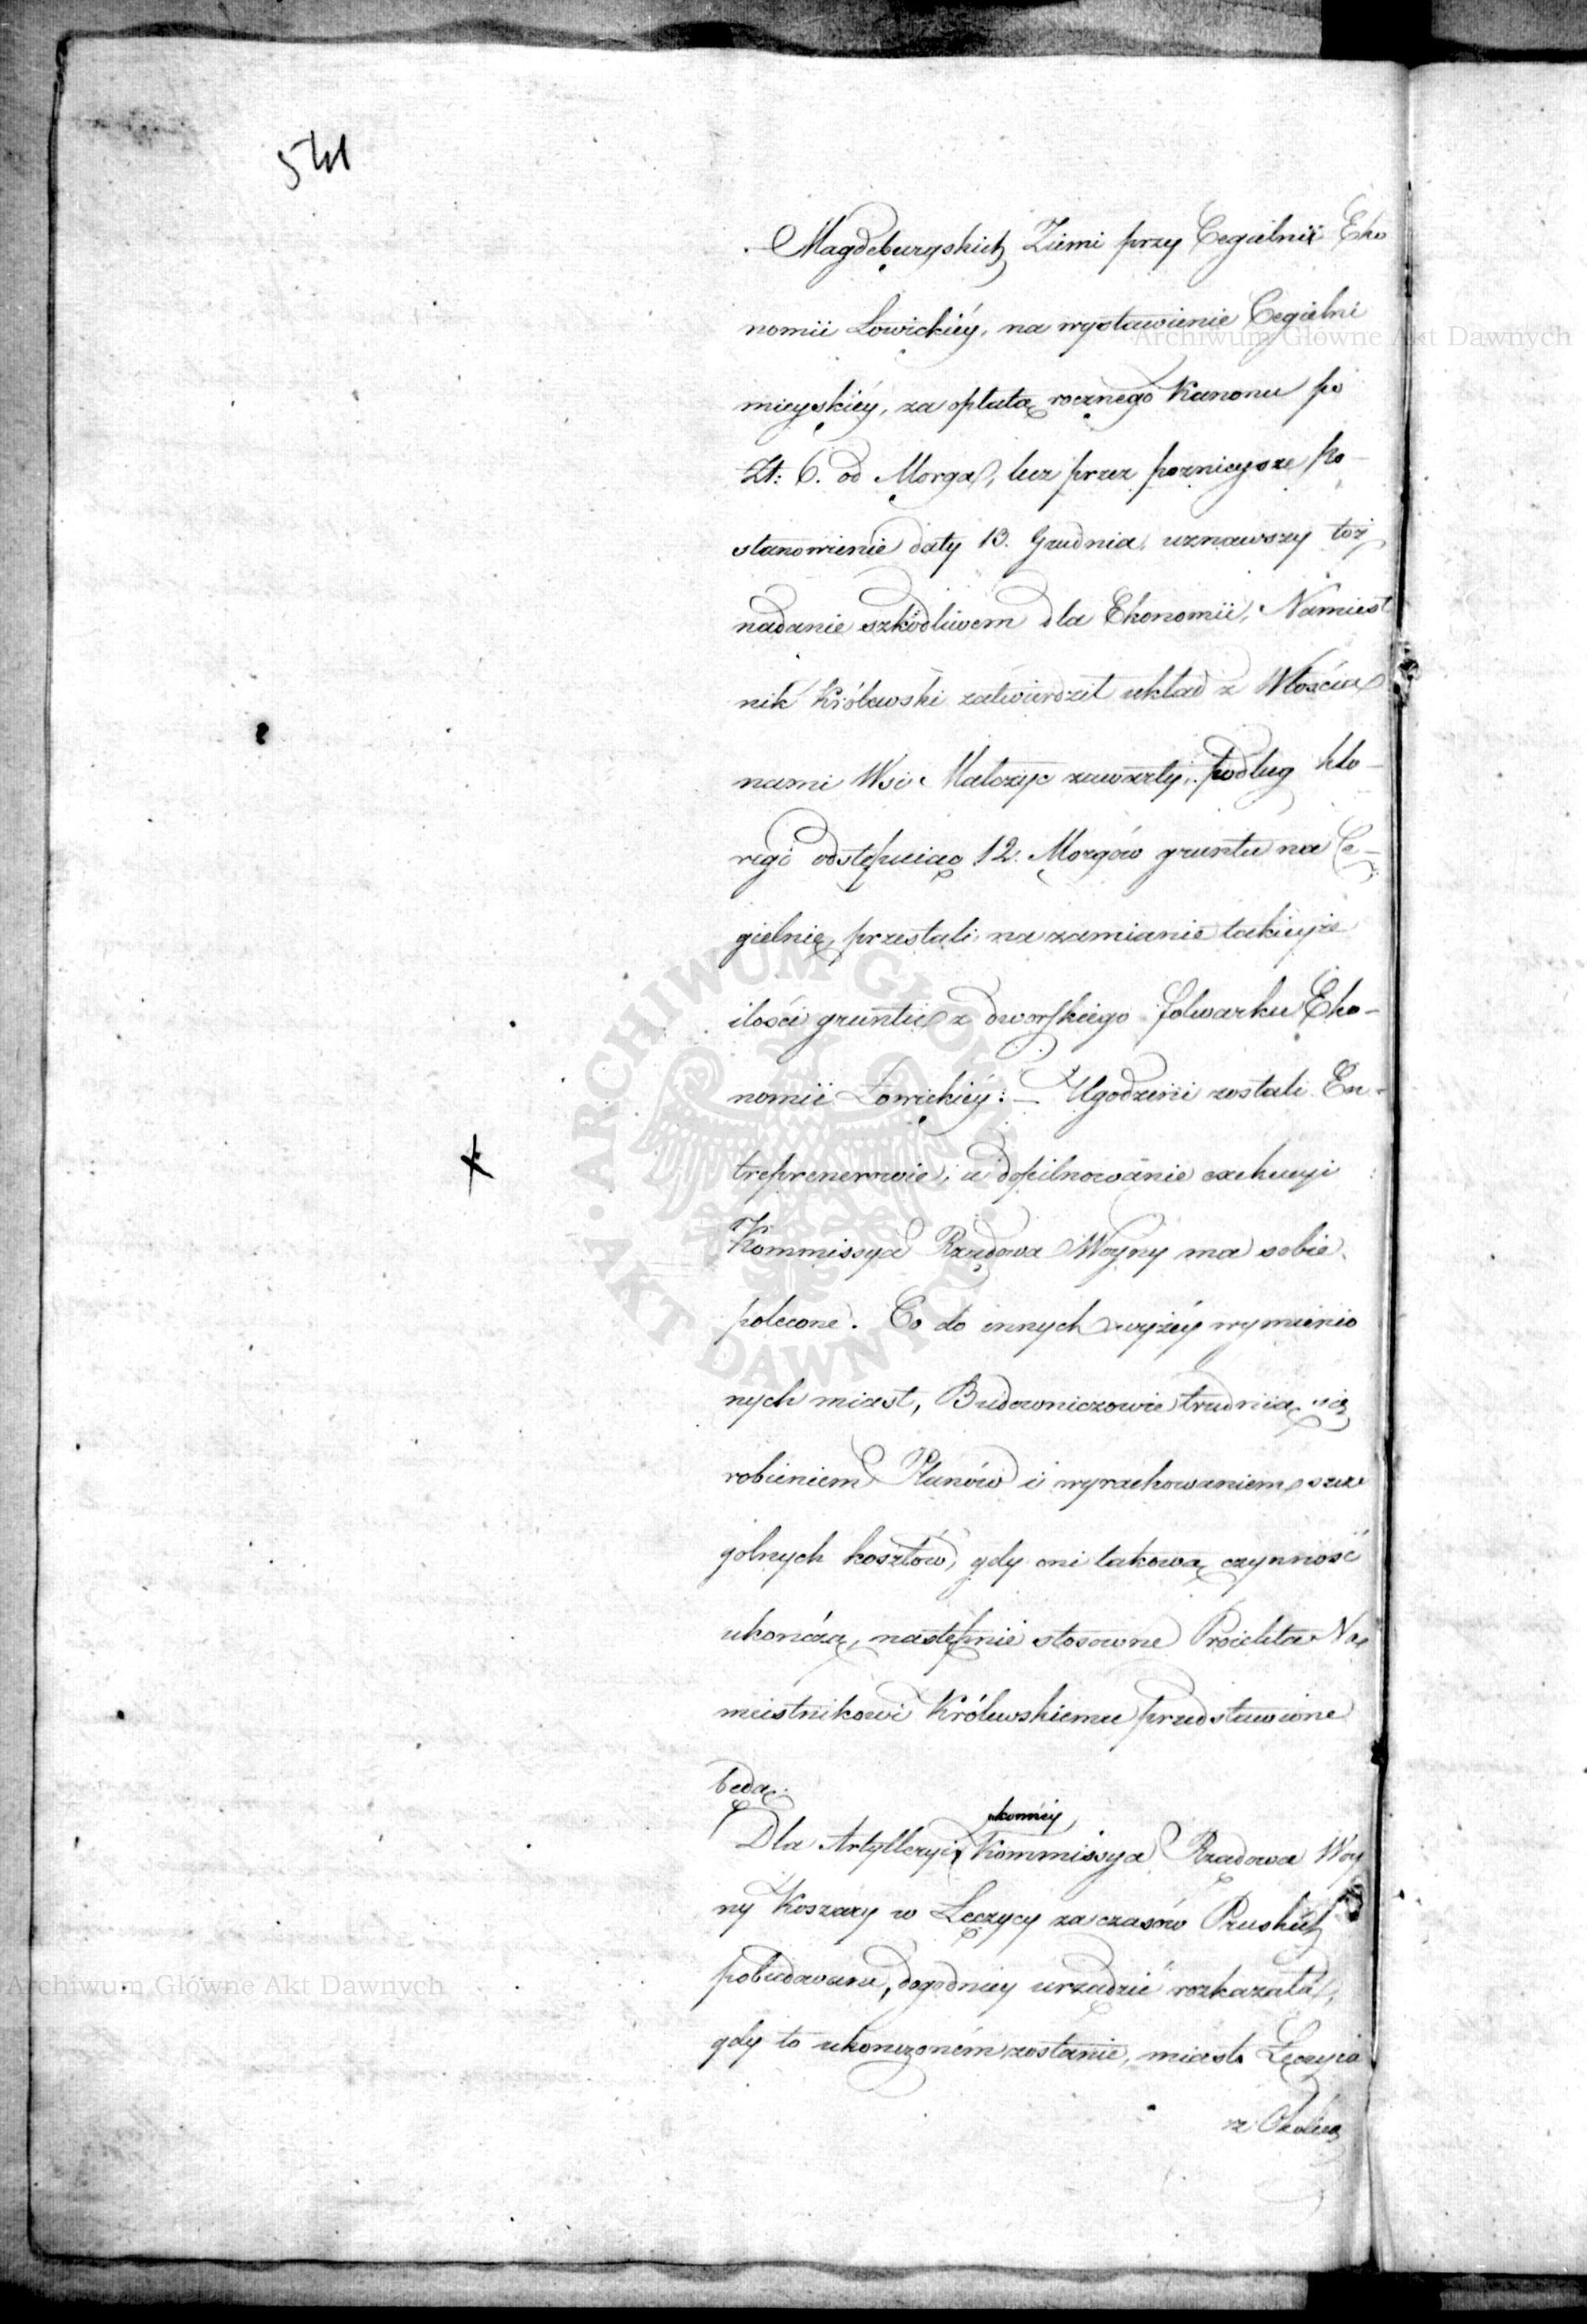 541
Magdeburgskich Ziemi przy Cegielnii Eko
nomii Łowickiéy, na wystawienie Cegielni
mieyskiéy, za opłatą rocznego Kanonu po
Zł: 6. od Morga, lecz przez poznieysze po-
stanowienie daty 13. Grudnia, uznawszy toż
nadanie szkodliwem dla Ekonomii, Namiest
nik Królewski zatwierdził układ z Włościa
nami Wsi Małszyc zawarty, podług któ-
rego odstępuiąc 12. Morgów gruntu na Ce-
gielnię, przestali na zamianie takieyże
ilości gruntu z dworskiego folwarku Eko-
nomii Łowickiéy: – Ugodzeni zostali En-
treprenerowie, a dopilnowanie exekucyi
x
Kommissya Rządowa Woyny ma sobie
polecone. Co do innych wyżéy wymienio
nych miast, Budowniczowie trudnią się
robieniem Planów i wyrachowaniem szcze
golnych kosztów, gdy oni takową czynność
ukończą, następnie stosowne Proiekta Na
miestnikowi Królewskiemu przedstawione
będą.
konnéy
Dla Artylleryi Kommissya Rządowa Woy
ny Koszary w Łęczycy za czasów Pruskich
pobudowane, dogodniey urządzić rozkazała,
gdy to ukonczoném zostanie, miasto Łęczyca
z Okolicą
Archiwum Główne Akt Dawnych
Archiwum Główne Akt Dawnych
ARCHIWUM GŁÓWNE
AKT DAWNYCH